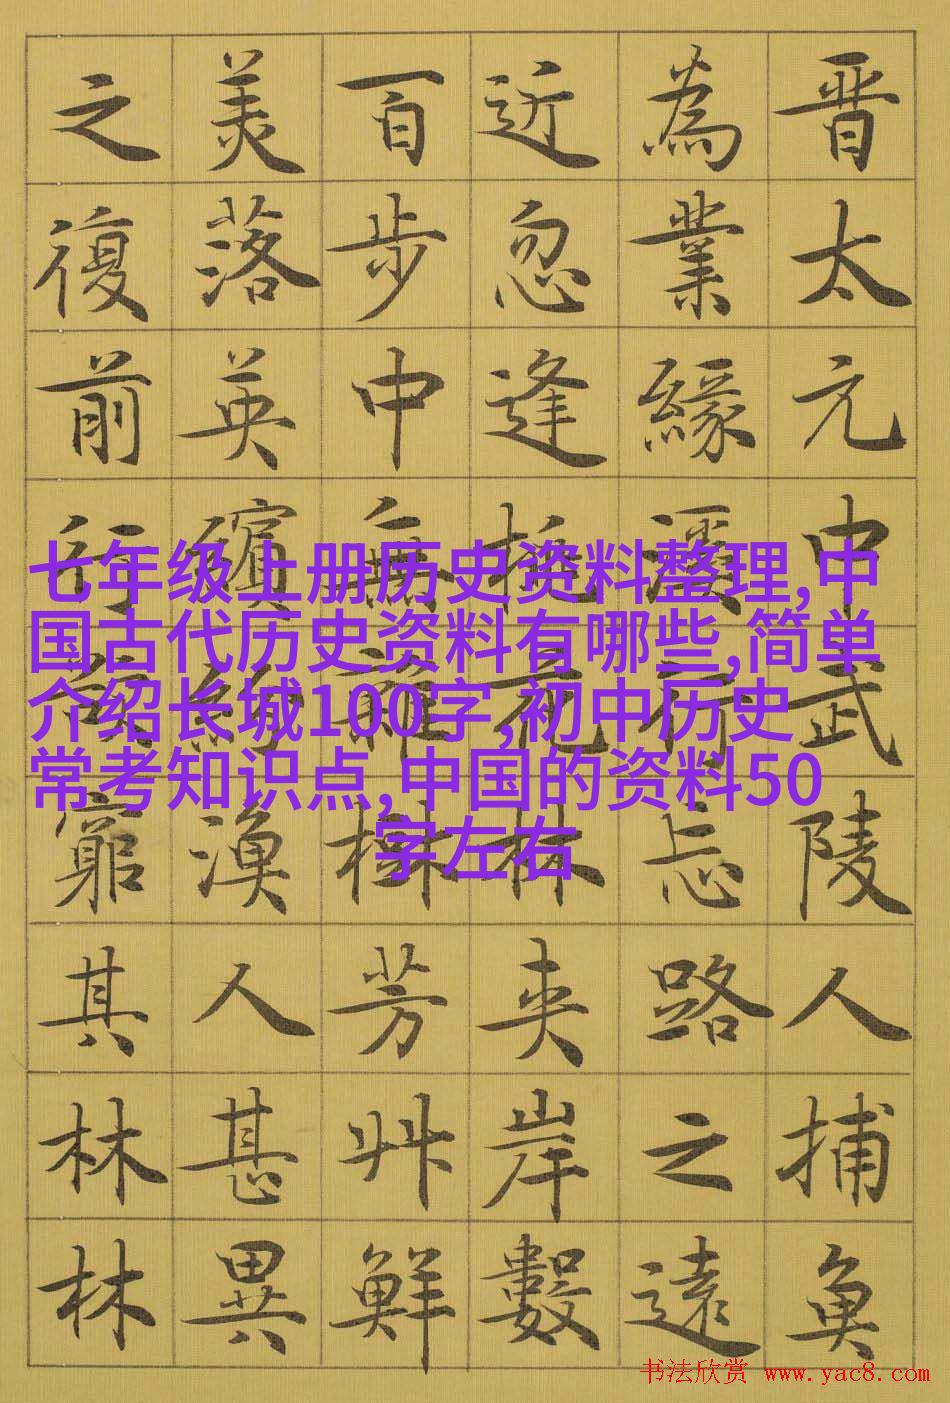 晋太元中武陵人捕魚
為業緣溪行忘路之遠
近忽逢桃花林夾岸數
百步中無雜樹芳艸鮮
美落英繽紛漁人甚異
之復前行欲窮其林林
七年级上册历史资料整理,中
国古代历史资料有哪些,简单
介绍长城100字,初中历史
常考知识点,中国的资料50
字左右
书法欣赏 www.yac8.com